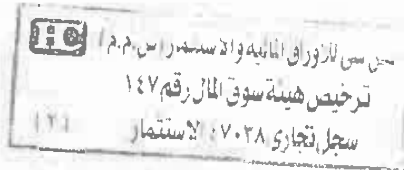 سي للأوراق المالية والاستثمار (ش.م.م)
ترخيص هيئة سوق المال رقم ١٤٧
سجل تجاري ٧٠٣٨ الاستثمار
(٢)